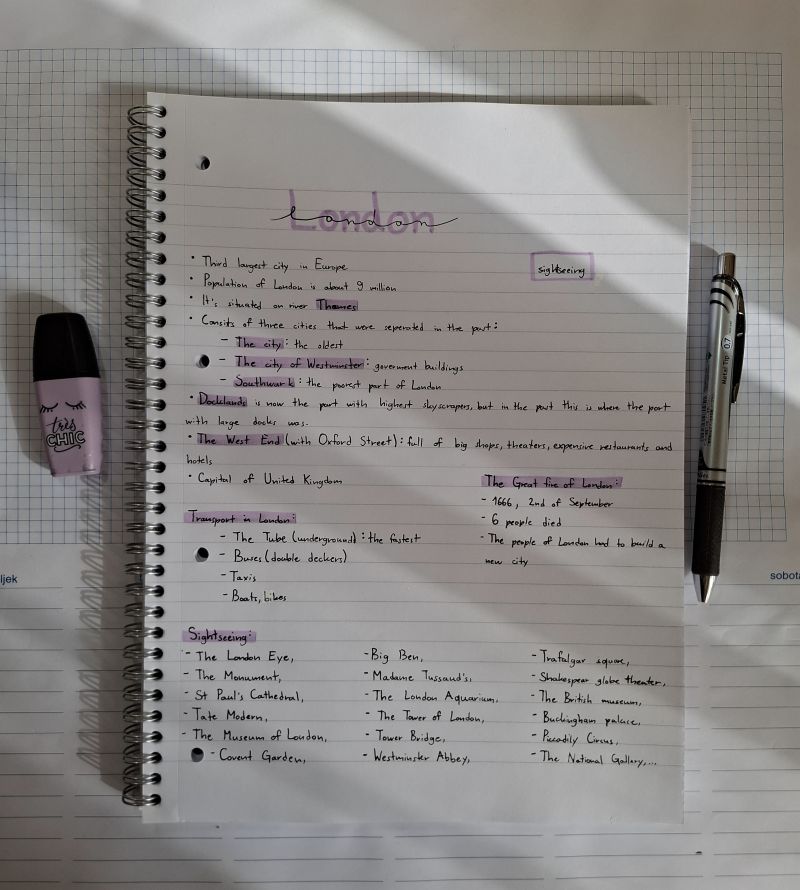 London
london
sightseeing
• Third largest city in Europe
• Population of London is about 9 million
• It's situated on river Thames
• Consits of three cities that were seperated in the past:
- The city: the oldest
- The city of Westminster: goverment buildings
- Southwark: the poorest part of London
• Docklands is now the part with highest skyscrapers, but in the past this is where the port
with large docks was.
• The West End (with Oxford Street): full of big shops, theaters, expensive restaurants and
hotels
• Capital of United Kingdom
The Great fire of London:
- 1666, 2nd of September
- 6 people died
- The people of London had to build a
new city
Transport in London:
- The Tube (underground): the fastest
- Buses (double deckers)
- Taxis
- Boats, bikes
Sightseeing:
- The London Eye,
- The Monument,
- St Paul's Cathedral,
- Tate Modern,
- The Museum of London,
- Covent Garden,
- Big Ben,
- Madame Tussand's,
- The London Aquarium,
- The Tower of London,
- Tower Bridge,
- Westminster Abbey,
- Trafalgar square,
- Shakespear globe theater,
- The British museum,
- Buckingham palace,
- Piccadily Circus,
- The National Gallary,...
très
CHIC
Metal Tip 0.7
ljek
sobota